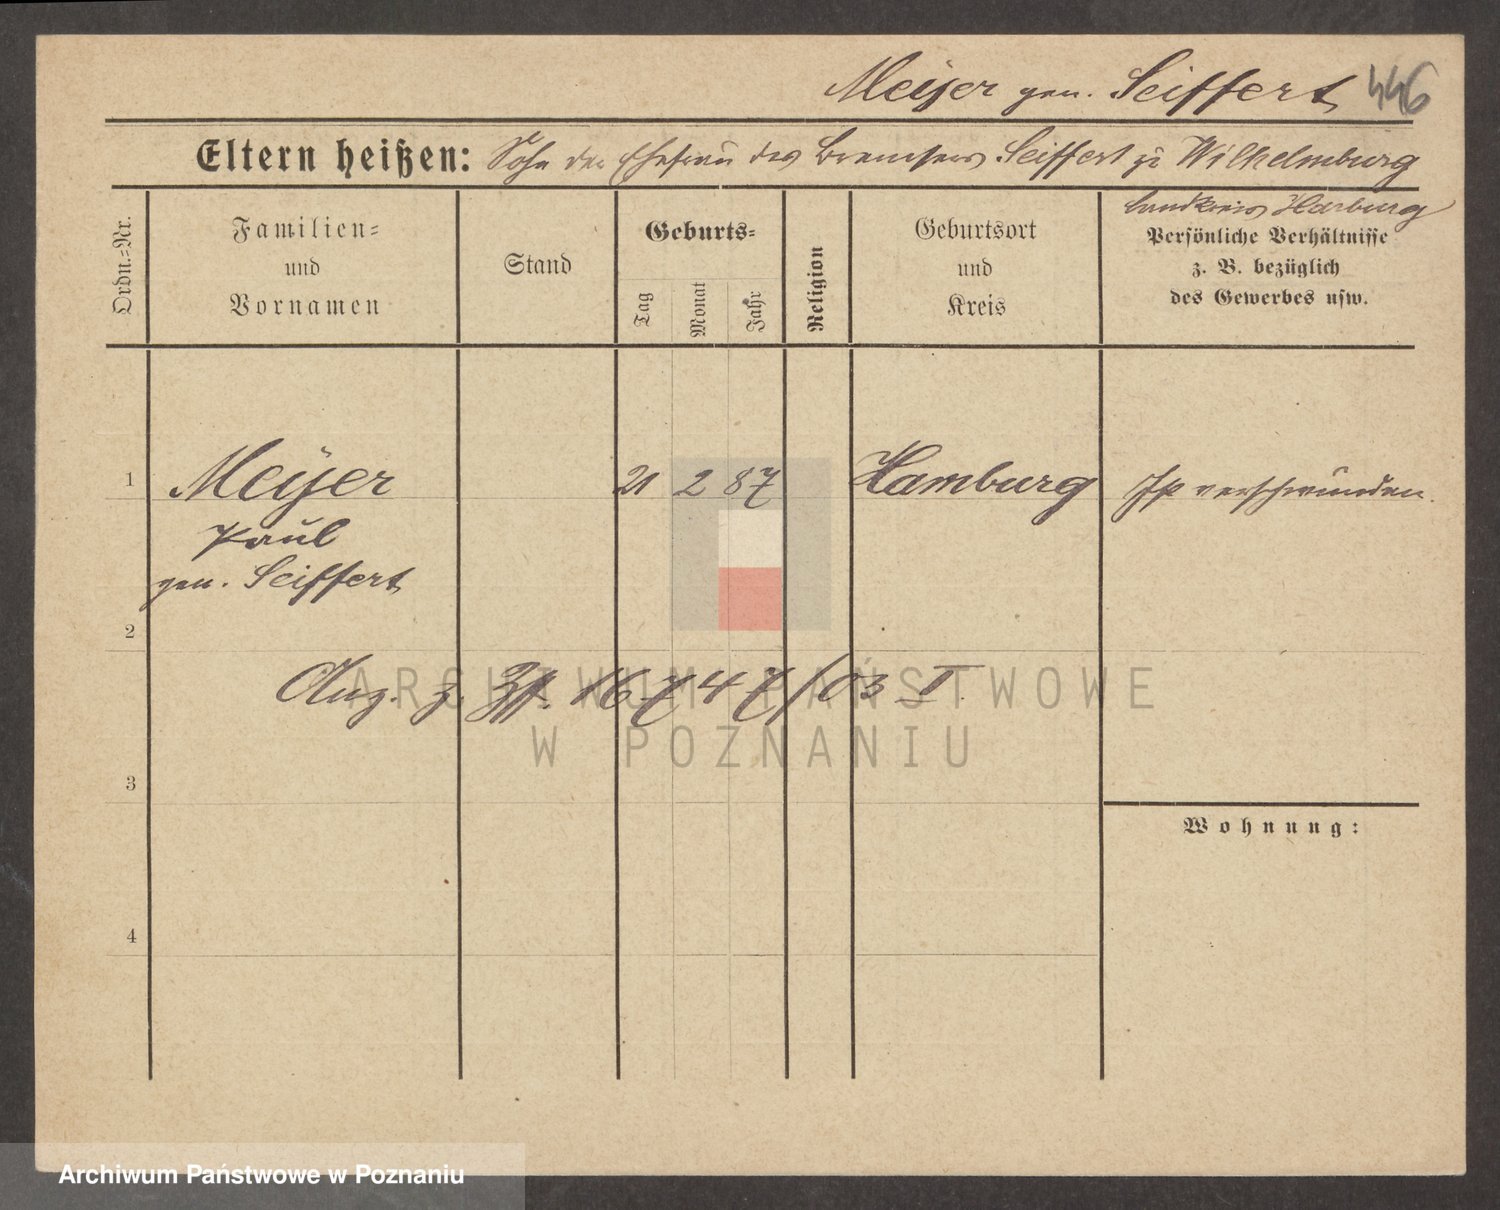 Meijer gen. Seiffert 446
Eltern heißen: Sohn der Ehefrau des Bremsers Seiffert zu Wilhelmburg
Landkreis Harburg
Ordn.-Nr.
Familien-
und
Vornamen
Stand
Geburts-
Tag
Monat
Jahr
Religion
Geburtsort
und
Kreis
Persönliche Verhältnisse
z. B. bezüglich
des Gewerbes usw.
1 Meijer 21 2 87 Hamburg Ist verschwunden.
Paul
gen. Seiffert
2
Ang. z. 16747/03 I.
ARCHIWUM PAŃSTWOWE
W POZNANIU
3
Wohnung:
4
Archiwum Państwowe w Poznaniu